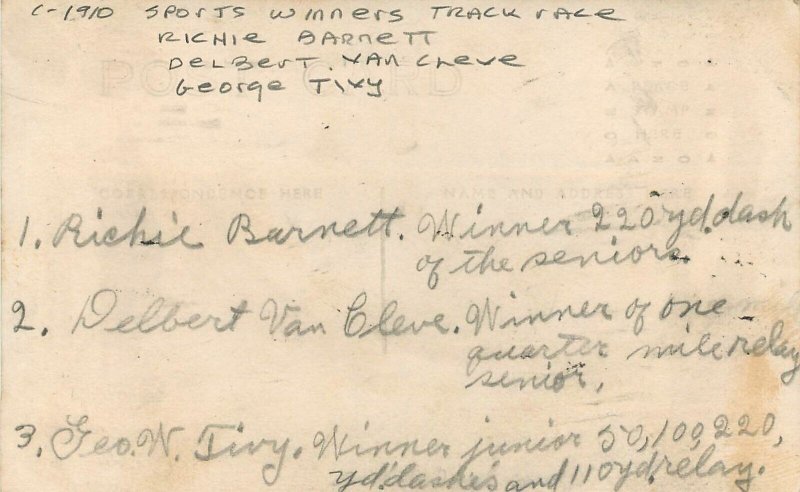 C-1910 SPORTS WINNERS TRACK RACE
RICHIE BARNETT
DELBERT VAN CLEVE
GEORGE TIVY
POST CARD
CORRESPONDENCE HERE
NAME AND ADDRESS HERE
1. Richie Barnett. Winner 220 yd. dash
of the seniors.
2. Delbert Van Cleve. Winner of one
quarter mile relay
senior.
3. Geo. W. Tivy. Winner junior 50, 100, 220,
yd. dashes and 110 yd relay.